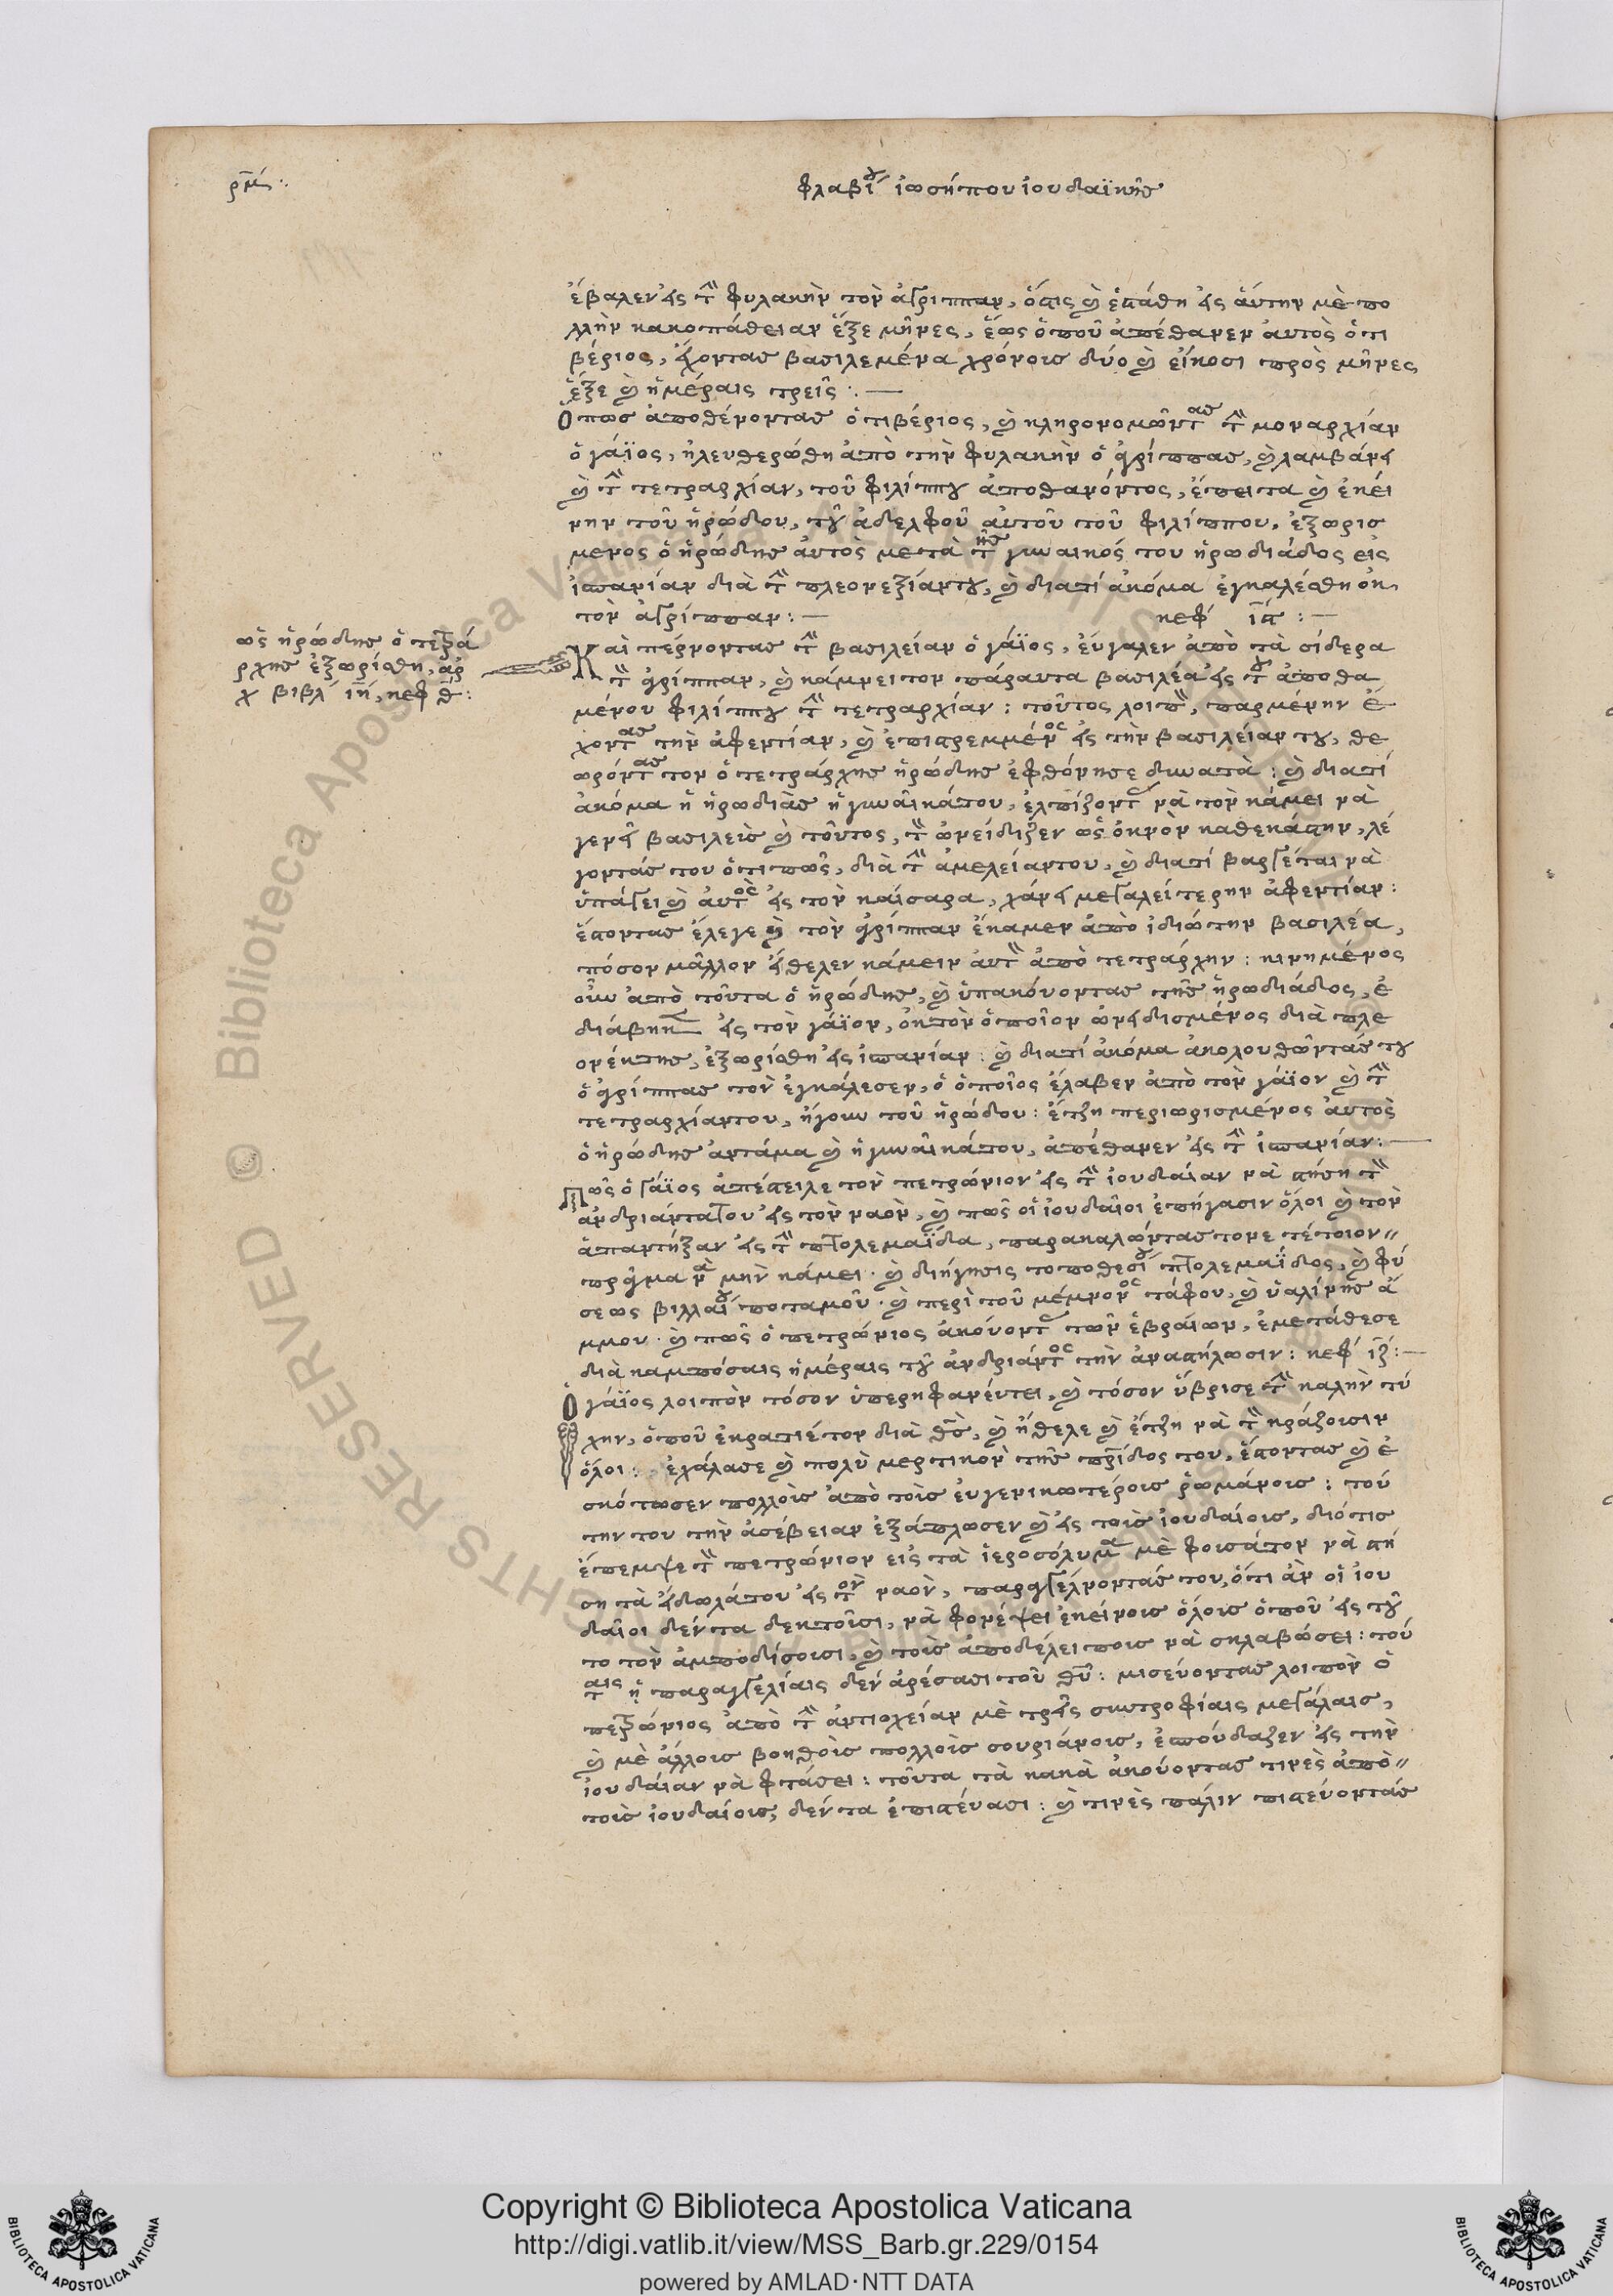 ρμϛ:
φλαβίου ἰωσήπου ἰουδαϊκῆς
ἔβαλεν εἰς τὴν φυλακὴν τὸν ἀγρίππαν, ὅστις καὶ ἐστάθη εἰς αὔτην μὲ πο
λλὴν κακοπάθειαν ἕξε μῆνες, ἕως ὁποῦ ἀπέθανεν αὐτὸς ὁ τι
βέριος, ἔχοντας βασιλεμένα χρόνους δύο καὶ εἴκοσι πρὸς μῆνες
ἕξε καὶ ἡμέραις τρεῖς:
Ὅπως ἀποθένοντας ὁ τιβέριος, καὶ κληρονομῶντας τὴν μοναρχίαν
ὁ γάϊος, ἠλευθερώθη ἀπὸ τὴν φυλακὴν ὁ ἀγρίππας, καὶ λαμβάνει
καὶ τὴν τετραρχίαν, τοῦ φιλίππου ἀποθανόντος, ἔπειτα καὶ ἐκεί
νην τοῦ ἡρώδου, τοῦ ἀδελφοῦ αὐτοῦ τοῦ φιλίππου, ἐξωρισ
μενος ὁ ἡρώδης αὐτὸς μετὰ τῆς γυναικός του ἡρωδιάδος εἰς
ἰσπανίαν διὰ τὴν πλεονεξίαν του, καὶ διατί ἀκόμα ἐγκαλέσθη ἐκ
τὸν ἀγρίππαν: κεφ ια:
ὡς ἡρώδης ὁ τετρά
ρχης ἐξωρίσθη, ἀρ
χ βιβλ ιη, κεφ θ:
Καὶ πέρνοντας τὴν βασιλείαν ὁ γάϊος, εὔγαλεν ἀπὸ τὰ σίδερα
τὸν ἀγρίππαν, καὶ κάμνει τον πάραυτα βασιλέα εἰς τοῦ ἀποθα
μένου φιλίππου τὴν τετραρχίαν: τοῦτος λοιπὸν, παρμένην ἔ
χοντας τὴν ἀφεντίαν, καὶ ἐπιστρεμμένος εἰς τὴν βασιλείαν του, θε
ωρόντας τον ὁ τετράρχης ἡρώδης ἐφθόνησε δυνατὰ: καὶ διατί
ἀκόμα ἡ ἡρωδιὰς ἡ γυναῖκά του, ἐλπίζοντας νὰ τὸν κάμει νὰ
γενεῖ βασιλεὺς καὶ τοῦτος, τὸν ὠνείδιζεν ὡς ὀκνὸν καθεκάστην, λέ
γοντάς του ὅτι πῶς, διὰ τὴν ἀμελείαν του, καὶ διατί βαργέται νὰ
ὑπάγει καὶ αὐτὸς εἰς τὸν καίσαρα, χάνει μεγαλείτερην ἀφεντίαν:
ἔστοντας ἔλεγε καὶ τὸν ἀγρίππαν ἔκαμεν ἀπὸ ἰδιώτην βασιλέα,
πόσον μᾶλλον ἤθελεν κάμειν αὐτὸν ἀπὸ τετράρχην: κινημένος
οὖν ἀπὸ τοῦτα ὁ ἡρώδης, καὶ ὑπακούοντας τῆς ἡρωδιάδος, ἐ
διάβηκεν εἰς τὸν γάϊον, ἐκ τὸν ὁποῖον ὠνειδισμένος διὰ πλε
ονέκτης, ἐξωρίσθη εἰς ἰσπανίαν: καὶ διατί ἀκόμα ἀκολουθῶντάς του
ὁ ἀγρίππας τὸν ἐγκάλεσεν, ὁ ὁποῖος ἔλαβεν ἀπὸ τὸν γάϊον καὶ τὴν
τετραρχίαν του, ἤγουν τοῦ ἡρώδου: ἔτζη περιωρισμένος αὐτὸς
ὁ ἡρώδης ἀντάμα καὶ ἡ γυναῖκά του, ἀπέθανεν εἰς τὴν ἰσπανίαν:
Πῶς ὁ γάϊος ἀπέστειλε τὸν πετρώνιον εἰς τὴν ἰουδαίαν νὰ στήση τὸν
ἀνδριάντα του εἰς τὸν ναὸν, καὶ πῶς οἱ ἰουδαῖοι ἐπήγασιν ὅλοι καὶ τὸν
ἀπαντήξαν εἰς τὴν πτολεμαΐδα, παρακαλώντας τονε τέτοιον
πρᾶγμα νὰ μὴν κάμει. καὶ διήγησις τοποθεσίου πτολεμαΐδος, καὶ φύ
σεως βιλλαίου ποταμοῦ. καὶ περὶ τοῦ μέμνονος τάφου, καὶ ὑαλίνης ἄ
μμου. καὶ πῶς ὁ πετρώνιος ἀκούοντας τῶν ἑβραίων, ἐμετάθεσε
διὰ καμπόσαις ἡμέραις τοῦ ἀνδριάντος τὴν ἀναστήλωσιν: κεφ ιζ:
Ὁ γάϊος λοιπὸν τόσον ὑπερηφανέντει, καὶ τόσον ὕβρισε τὴν καλὴν τύ
χην, ὁποῦ ἐκρατιέτον διὰ θεὸς, καὶ ἤθελε καὶ ἔτζη νὰ τὸν κράζουσιν
ὅλοι: ἐχάλασε καὶ πολὺ μερτικὸν τῆς πατρίδος του, ἔστοντας καὶ ἐ
σκότωσεν πολλοὺς ἀπὸ τοὺς εὐγενικωτέρους ῥωμάνους: τού
την του τὴν ἀσέβειαν ἐξάπλωσεν καὶ εἰς τοὺς ἰουδαίους, διότις
ἔπεμψε τὸν πετρώνιον εἰς τὰ ἱεροσόλυμα μὲ φουσάτον νὰ στή
ση τὰ εἴδωλά του εἰς τὸν ναὸν, παραγγέλνοντάς του, ὅτι ἂν οἱ ἰου
δαῖοι δέν τα δεκτοῦσι, νὰ φονέψει ἐκείνους ὅλους ὁποῦ εἰς τοῦ
το τὸν ἀμποδίσουσι, καὶ τοὺς ἀποδέλειπους νὰ σκλαβώσει: τού
ταις ἡ παραγγελίαις δέν ἀρέσασι τοῦ θεοῦ: μισεύοντας λοιπὸν ὁ
πετρώνιος ἀπὸ τὴν ἀντιοχείαν μὲ τρεῖς συντροφίαις μεγάλαις,
καὶ μὲ ἄλλους βοηθοὺς πολλοὺς σουριάνους, ἐσπούδαζεν εἰς τὴν
ἰουδαίαν νὰ φτάσει: τοῦτα τὰ κακὰ ἀκούοντας τινὲς ἀπὸ
τοὺς ἰουδαίους, δέν τα ἐπιστεύασι: καὶ τινὲς πάλιν πιστεύοντάς
Copyright © Biblioteca Apostolica Vaticana
http://digi.vatlib.it/view/MSS_Barb.gr.229/0154
powered by AMLAD·NTT DATA
BIBLIOTECA APOSTOLICA VATICANA
BIBLIOTECA APOSTOLICA VATICANA